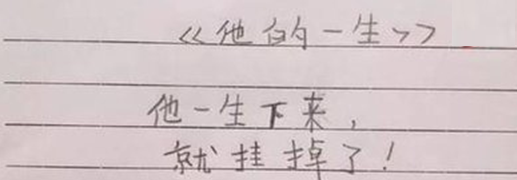 《他的一生》
他一生下来，
就挂掉了！